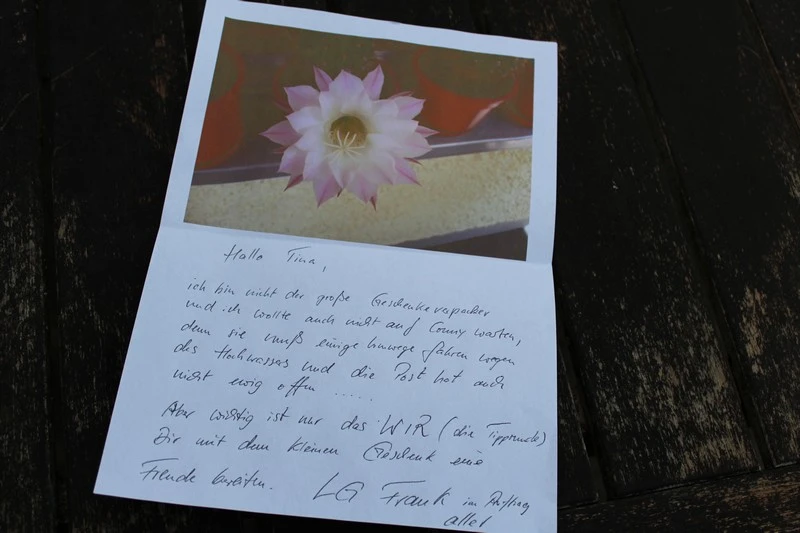 Hallo Tina,
ich bin nicht der große Geschenkeverpacker
und ich wollte auch nicht auf Conny warten,
denn sie muß einige Umwege fahren wegen
des Hochwassers und die Post hat auch
nicht ewig offen .....
Aber wichtig ist nur das WIR (die Tipprunde)
Dir mit dem kleinen Geschenk eine
Freude bereiten.
LG Frank im Auftrag
aller